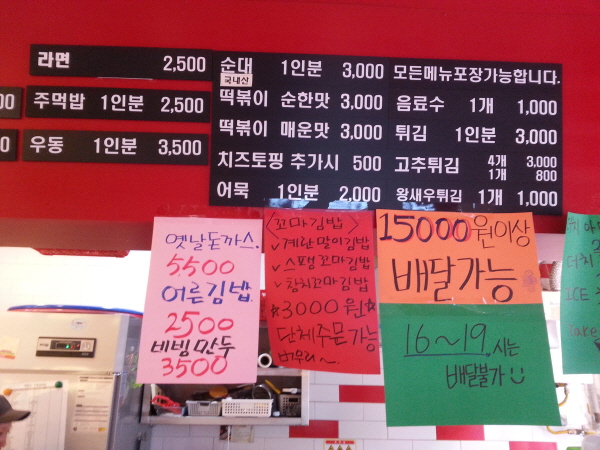 라면 2,500
00 주먹밥 1인분 2,500
0 우동 1인분 3,500
순대 1인분 3,000
국내산
떡볶이 순한맛 3,000
떡볶이 매운맛 3,000
치즈토핑 추가시 500
어묵 1인분 2,000
모든메뉴포장가능합니다.
음료수 1개 1,000
튀김 1인분 3,000
고추튀김 4개 3,000
1개 800
왕새우튀김 1개 1,000
옛날돈까스.
5500
어른김밥
2500
비빔만두
3500
<꼬마김밥>
✓계란말이김밥
✓스팸꼬마김밥
✓참치꼬마김밥
☆3000원☆
단체주문가능
15000원이상
배달가능
16~19.시는
배달불가
ICE